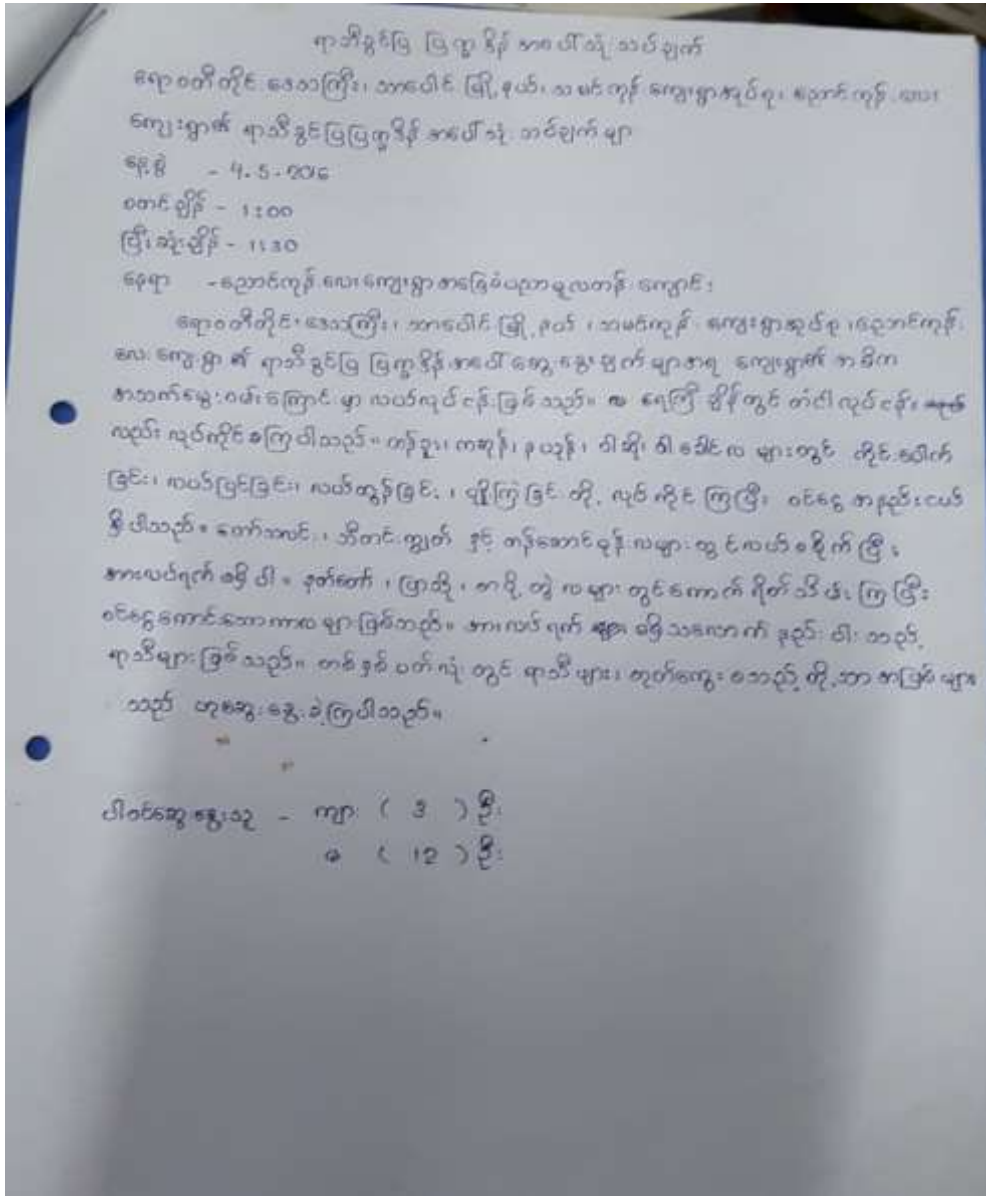 ရာသီခွင်ပြ ပြက္ခဒိန် အပေါ်သုံးသပ်ချက်
ဧရာဝတီတိုင်းဒေသကြီး၊ သာပေါင်းမြို့နယ်၊ သမင်ကုန်းကျေးရွာအုပ်စု၊ ညောင်ကုန်းလေး
ကျေးရွာ၏ ရာသီခွင်ပြပြက္ခဒိန် အပေါ်သုံးသပ်ချက်များ
နေ့စွဲ - 4.5.2016
စတင်ချိန် - 1:00
ပြီးဆုံးချိန် - 1:30
နေရာ - ညောင်ကုန်းလေးကျေးရွာအခြေခံပညာမူလတန်းကျောင်း
ဧရာဝတီတိုင်းဒေသကြီး၊ သာပေါင်းမြို့နယ်၊ သမင်ကုန်းကျေးရွာအုပ်စု၊ ညောင်ကုန်း
လေးကျေးရွာ၏ ရာသီခွင်ပြ ပြက္ခဒိန်အပေါ် ဆွေးနွေးချက်များအရ ကျေးရွာ၏ အဓိက
အသက်မွေးဝမ်းကြောင်းမှာ လယ်လုပ်ငန်းဖြစ်သည်။ ရေကြီးချိန်တွင် တံငါလုပ်ငန်း
လည်း လုပ်ကိုင်ကြပါသည်။ တန်ခူး၊ ကဆုန်၊ နယုန်၊ ဝါဆို၊ ဝါခေါင်လများတွင် ကိုင်းပေါက်
ခြင်း၊ လယ်ပြင်ခြင်း၊ လယ်ထွန်ခြင်း၊ ပျိုးကြဲခြင်းတို့ လုပ်ကိုင်ကြပြီး ဝင်ငွေအနည်းငယ်
ရှိပါသည်။ တော်သလင်း၊ သီတင်းကျွတ် နှင့် တန်ဆောင်မုန်းလများတွင်လယ်စိုက်ပြီး
အားလပ်ရက်မရှိပါ။ နတ်တော်၊ ပြာသို၊ တပို့တွဲလများတွင်ကောက်ရိတ်သိမ်းကြပြီး
ဝင်ငွေကောင်းသောကာလများဖြစ်သည်။ အားလပ်ရက် မရှိသလောက် နည်းပါးသည့်
ရာသီများဖြစ်သည်။ တစ်နှစ်ပတ်လုံးတွင် ရာသီများ၊ တုတ်ကွေးစသည့်တို့သာ အဖြစ်များ
သည် ဟုဆွေးနွေးခဲ့ကြပါသည်။
ပါဝင်ဆွေးနွေးသူ - ကျား ( 3 ) ဦး
မ ( 12 ) ဦး